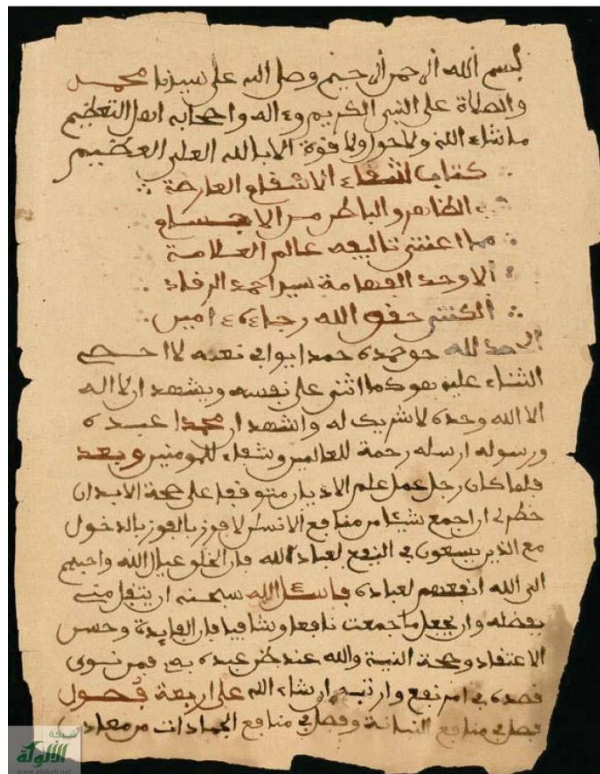 بسم الله الرحمن الرحيم وصلى الله على سيدنا محمد
والصلاة على النبي الكريم وءاله واصحابه اهل التعظيم
ما شاء الله ولا حول ولا قوة الا بالله العلي العظيم
كتاب شفاء الاسقام العارضة
في الظاهر والباطن من الاجسام
مما اعتنى بتاليفه عالم العلامة
الاوحد الفهامة سيد احمد الرقاد
الكنتي حقق الله رجاءه ءامين
الحمد لله حق حمده حمدا يوافي نعمه لا احصي
الثناء عليه هو كما اثنى على نفسه ويشهد ان لا اله
الا الله وحده لا شريك له واشهد ان محمدا عبده
ورسوله ارسله رحمة للعالمين وشفاء للمومنين وبعد
فلما كان رجل عمل علم الاديان متوقفا على صحة الابدان
خطر لي ان اجمع شيئا من منافع الانس لافوز بالفوز بالدخول
مع الذين يسعون في النفع لعباد الله فان الخلق عيال الله واحبهم
الى الله انفعهم لعباده فاسئل الله سبحنه ان يتقبل مني
بفضله وان يجعل ما جمعت نافعا وشافيا فان الفايدة وحسن
الاعتقاد وصحة النية والله عند ظن عبده به فمن نوى
قصده في امر نفع وارتبه ان شاء الله على اربعة فصول
فصل في منافع النباتة وفصل في منافع الجمادات من معادن
شبكة
الألوكة
www.alukah.net